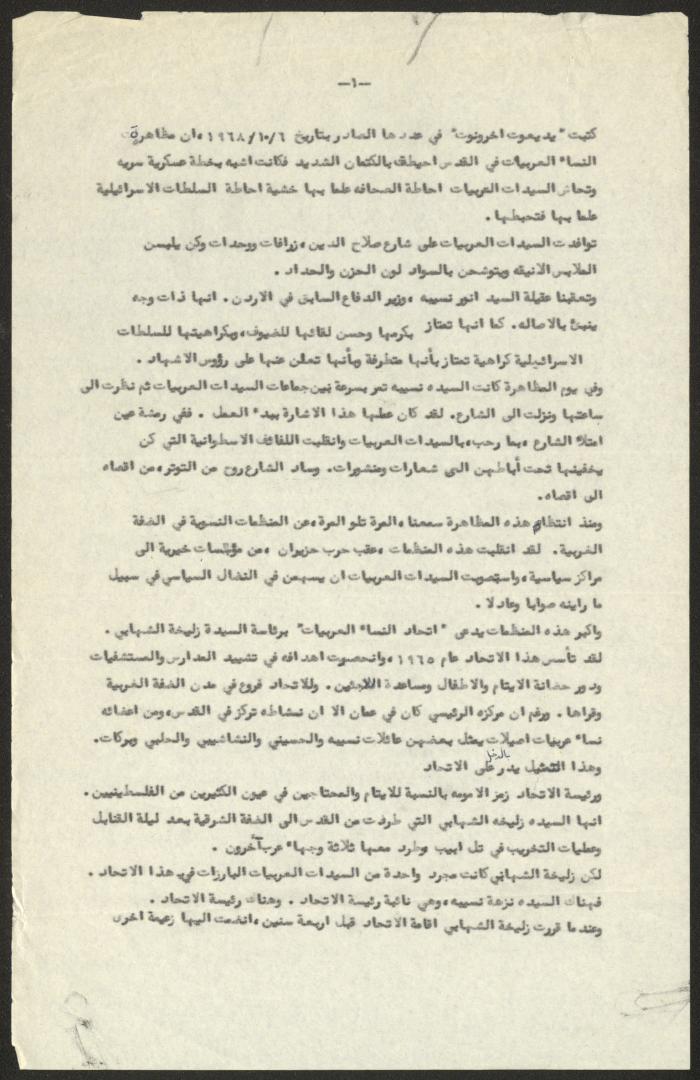 —١—
كتبت "يديعوت اخرونوت" في عددها الصادر بتاريخ ١٩٦٨/١٠/٦ ،ان مظاهرة
النساء العربيات في القدس احيطت بالكتمان الشديد فكانت اشبه بخطة عسكرية سريه
وتحاشى السيدات العربيات احاطة الصحافه علما بها خشية احاطة السلطات الاسرائيلية
علما بها فتحبطها.
توافدت السيدات العربيات على شارع صلاح الدين ،زرافات ووحدات وكن يلبسن
الملابس الانيقه ويتوشحن بالسواد لون الحزن والحداد .
وتعقبنا عقيلة السيد انور نسيبه ،وزير الدفاع السابق في الاردن. انها ذات وجه
ينبئ بالاصاله. كما انها تمتاز بكرمها وحسن لقائها للضيوف،وبكراهيتها للسلطات
الاسرائيلية كراهية تمتاز بأنها متطرفة وبأنها تعلن عنها على رؤوس الاشهاد .
وفي يوم المظاهرة كانت السيده نسيبه تمر بسرعة بين جماعات السيدات العربيات ثم نظرت الى
ساعتها ونزلت الى الشارع. لقد كان عملها هذا الاشارة ببدء العمل . ففي رمشة عين
امتلأ الشارع ،بما رحب،بالسيدات العربيات وانقلبت اللفائف الاسطوانية التي كن
يخفينها تحت أباطهن الى شعارات ومنشورات. وساد الشارع روح من التوتر،من اقصاه
الى اقصاه.
ومنذ انتظام هذه المظاهرة سمعنا،المرة تلو المرة،عن المنظمات النسوية في الضفة
الغربية. لقد انقلبت هذه المنظمات ،عقب حرب حزيران ،من مؤسسات خيرية الى
مراكز سياسية،واستصوبت السيدات العربيات ان يسهمن في النضال السياسي في سبيل
ما راينه صوابا وعادلا .
واكبر هذه المنظمات يدعى "اتحاد النساء العربيات" برئاسة السيدة زليخة الشهابي .
لقد تأسس هذا الاتحاد عام ١٩٦٥،وانحصرت اهدافه في تشييد المدارس والمستشفيات
ودور حضانة الايتام والاطفال ومساعدة اللاجئين. وللاتحاد فروع في مدن الضفة الغربية
وقراها. ورغم ان مركزه الرئيسي كان في عمان الا ان نشاطه تركز في القدس،ومن اعضائه
نساء عربيات اصيلات يمثل بعضهن عائلات نسيبه والحسيني والنشاشيبي والحلبي وبركات.
وهذا التمثيل يدر بالدخل على الاتحاد
ورئيسة الاتحاد رمز الامومه بالنسبة للايتام والمحتاجين في عيون الكثيرين من الفلسطينيين.
انها السيده زليخه الشهابي التي طردت من القدس الى الضفة الشرقية بعد ليلة القنابل
وعمليات التخريب في تل ابيب وطرد معها ثلاثة وجهاء عرب آخرون .
لكن زليخة الشهابي كانت مجرد واحدة من السيدات العربيات البارزات في هذا الاتحاد.
فهناك السيده نزهة نسيبه،وهي نائبة رئيسة الاتحاد . وهناك رئيسة الاتحاد .
وعندما قررت زليخة الشهابي اقامة الاتحاد قبل اربعة سنين،انضمت اليها زعيمة اخرى